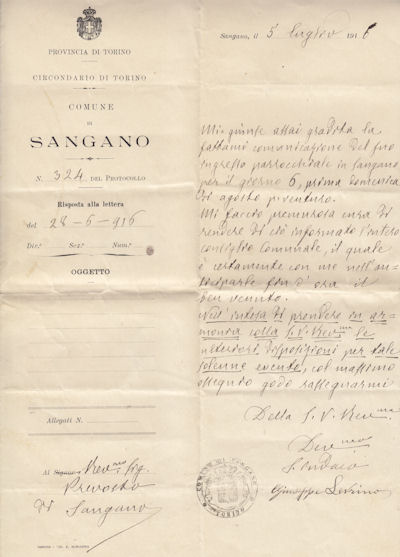 PROVINCIA DI TORINO
CIRCONDARIO DI TORINO
COMUNE
DI
SANGANO
N. 324 DEL PROTOCOLLO
Risposta alla lettera
del 28-6-916
Div.e Sez.e Num.o
OGGETTO
Allegati N.
Al Signor Rev.mo Sig.
Prevosto
di Sangano
Sangano, il 5 luglio 1916
Mi giunse assai gradita la
fattami comunicazione del suo
ingresso parrocchiale in Sangano
per il giorno 6, prima domenica
di agosto p. venturo.
Mi faccio premurosa cura di
rendere di ciò informato l'intero
consiglio Comunale, il quale
è certamente con me nell'an-
ticiparle fin d'ora il
ben venuto.
Nell'intesa di prendere in ar-
monia colla S. V. Rev.ma le
ulteriori disposizioni per tale
solenne evento, col massimo
ossequio godo rassegnarmi
Della S. V. Rev.ma
Dev.mo
Sindaco
Giuseppe
COMUNE DI SANGANO